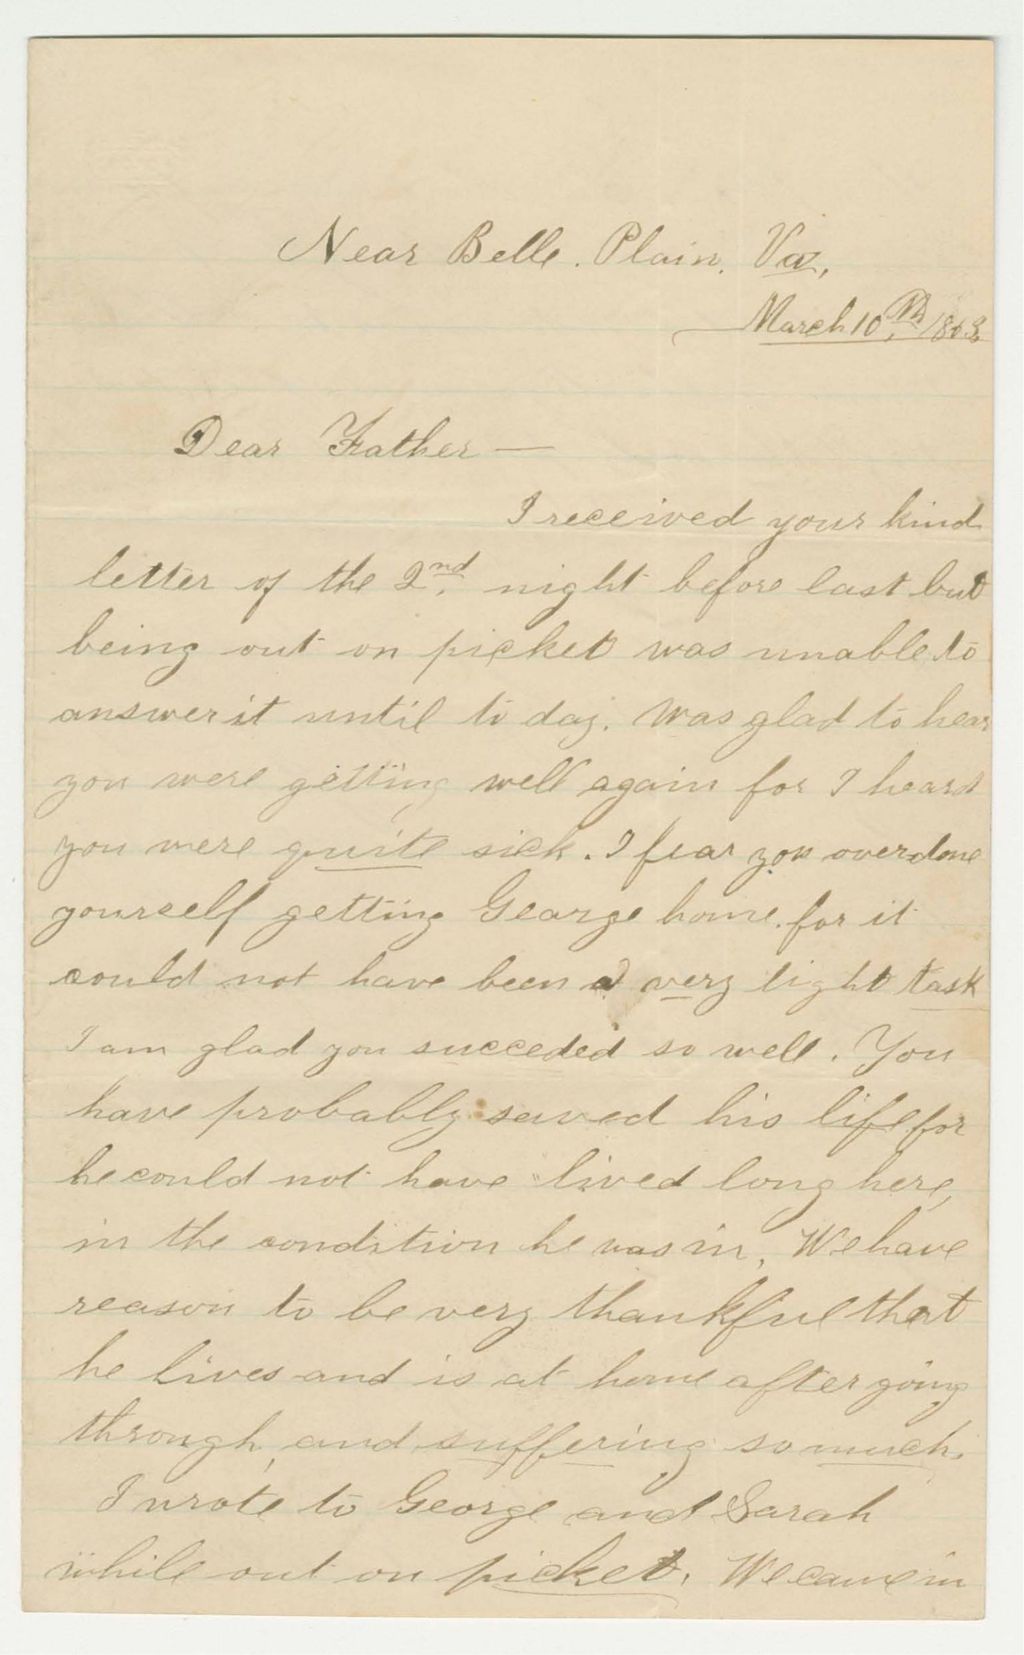 Near Belle. Plain. Va,
March 10th, 1863
Dear Father —
I received your kind
letter of the 2nd. night before last but
being out on picket was unable to
answer it until to day. Was glad to hear
you were getting well again for I heard
you were quite sick. I fear you overdone
yourself getting George home. for it
could not have been a very light task
I am glad you succeded so well. You
have probably saved his life for
he could not have lived long here,
in the condition he was in. We have
reason to be very thankful that
he lives and is at home after going
through, and suffering so much.
I wrote to George and Sarah
while out on picket. We came in